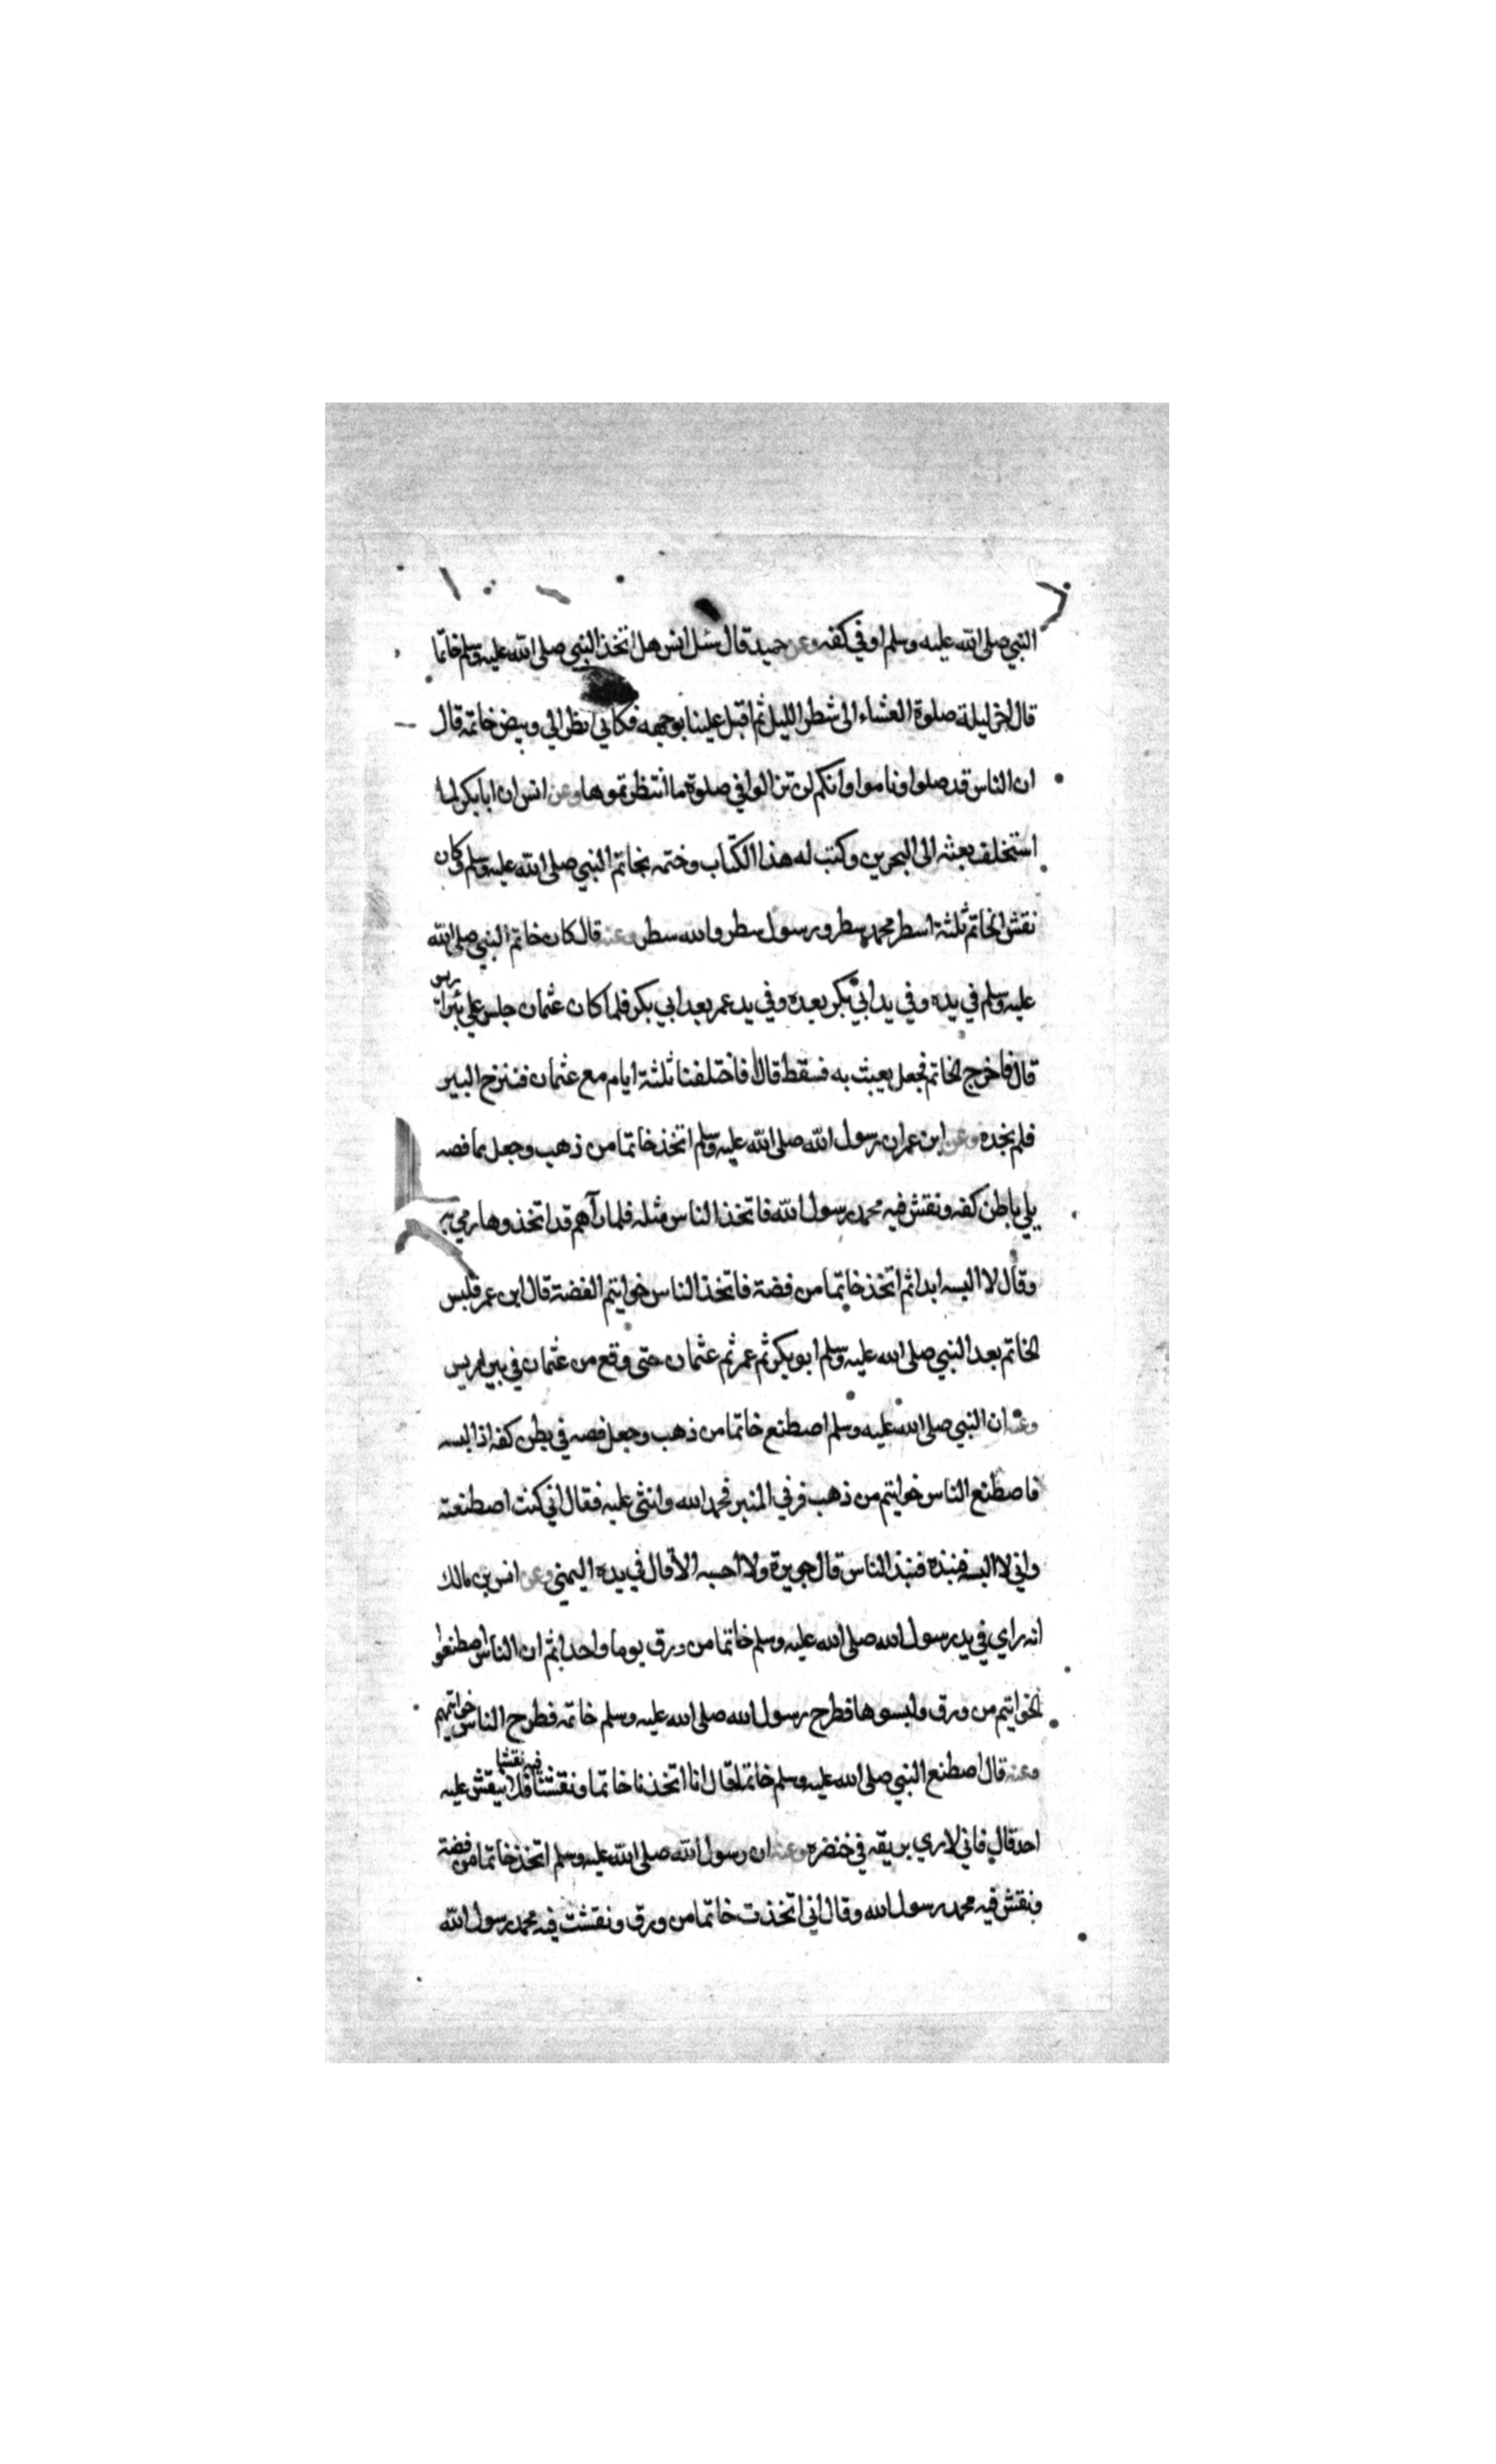 النبي صلى الله عليه وسلم او في كفه وعن حميد قال سئل انس هل اتخذ النبي صلى الله عليه وسلم خاتما
قال اخر ليلة صلوة العشاء الى شطر الليل ثم اقبل علينا بوجهه فكاني انظر الي وبيض خاتمه قال
ان الناس قد صلوا وناموا وانكم لن تزالوا في صلوة ما انتظرتموها وعن انس ان ابا بكر لما
استخلف بعثه الى البحرين وكتب له هذا الكتاب وختمه بخاتم النبي صلى الله عليه وسلم وكان
نقش الخاتم ثلثة اسطر محمد سطر ورسول سطر والله سطر وعنه قال كان خاتم النبي صلى الله
عليه وسلم في يده وفي يد ابي بكر بعده وفي يد عمر بعد ابي بكر فلما كان عثمان جلس علي بئر اريس
قال فاخرج الخاتم فجعل يعبث به فسقط قال فاختلفنا ثلثة ايام مع عثمان فننزح البير
فلم نجده وعن ابن عمر ان رسول الله صلى الله عليه وسلم اتخذ خاتما من ذهب وجعل مما فصه
يلي باطن كفه ونقش فيه محمد رسول الله فاتخذ الناس مثله فلما رآهم قد اتخذوها رمي به
وقال لا البسه ابدا ثم اتخذ خاتما من فضة فاتخذ الناس خواتيم الفضة قال ابن عمر فلبس
الخاتم بعد النبي صلى الله عليه وسلم ابو بكر ثم عمر ثم عثمان حتى وقع من عثمان في بير اريس
وعنه ان النبي صلى الله عليه وسلم اصطنع خاتما من ذهب وجعل فصه في بطن كفه اذا لبسه
فاصطنع الناس خواتيم من ذهب فرقي المنبر فحمد الله واثنى عليه فقال اني كنت اصطنعته
واني لا البسه فنبذه فنبذ الناس قال جويرة ولا احسبه الا قال في يده اليمنى وعن انس بن مالك
انه راي في يد رسول الله صلى الله عليه وسلم خاتما من ورق يوما واحدا ثم ان الناس اصطنعوا
الخواتيم من ورق ولبسوها فطرح رسول الله صلى الله عليه وسلم خاتمه فطرح الناس خواتيمهم
وعنه قال اصطنع النبي صلى الله عليه وسلم خاتما قال انا اتخذنا خاتما ونقشنا فيه نقشا فلا ينقش عليه
احد قال فاني لاري بريقه في خنضره وعنه ان رسول الله صلى الله عليه وسلم اتخذ خاتما من فضة
ونقش فيه محمد رسول الله وقال اني اتخذت خاتما من ورق ونقشت فيه محمد رسول الله